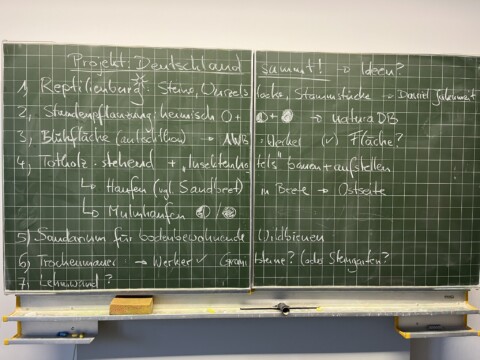 Projekt: Deutschland summt! → Ideen?
1, Reptilienburg: Steine, Wurzelstöcke, Stammstücke → Daniel
2, Staudenpflanzung: heimisch → naturaDB
3, Blühfläche (autochthon) → Werker (✓) Fläche?
4, Totholz stehend + "Insektenhotels" bauen + aufstellen
↳ Haufen (vgl. Sandbeet) in Beete → Ostseite
↳ Mulmhaufen
5) Sandarium für bodenbewohnende Wildbienen
6) Trockenmauer → Werker ✓ (Granitsteine? Steingarten?
7, Lehmwand?